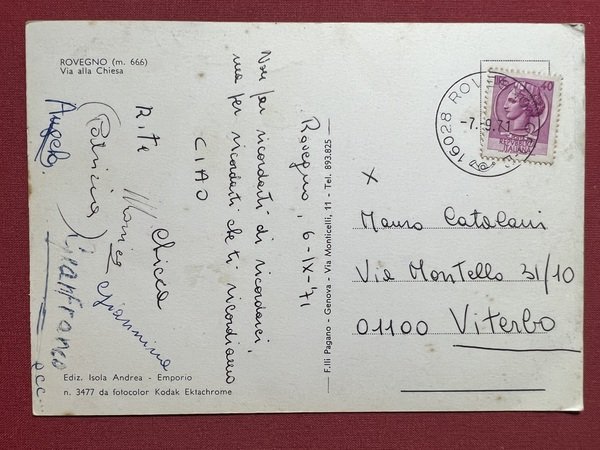 ROVEGNO (m. 666)
Via alla Chiesa
Rovegno, 6-IX-'71
Non per ricordarti di ricordarci,
ma per ricordarti che ti ricordiamo
CIAO
Chicca
Giannina
Rita
Monica
(Patrizia)
Gianfranco
Angela
ecc...
Ediz. Isola Andrea - Emporio
n. 3477 da fotocolor Kodak Ektachrome
F.lli Pagano - Genova - Via Monticelli, 11 - Tel. 893.825
16028 RO
-7. 9.71
LIRE 40
X
Mauro Catalani
Via Montello 31/10
01100 Viterbo